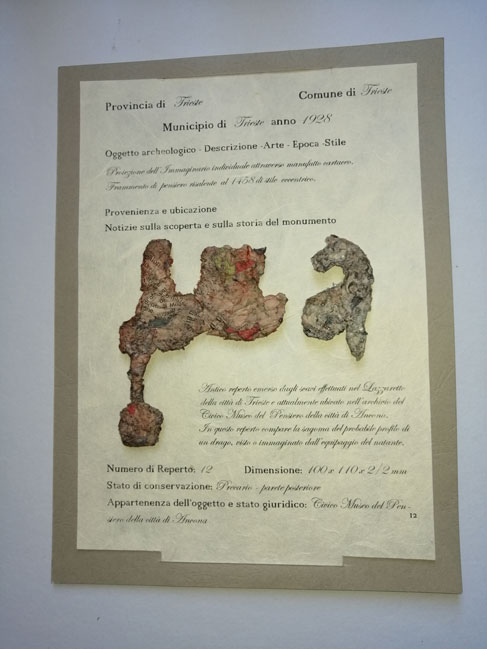 Provincia di Trieste
Comune di Trieste
Municipio di Trieste anno 1928
Oggetto archeologico - Descrizione -Arte - Epoca -Stile
Proiezione dell'Immaginario individuale attraverso manufatto cartaceo.
Frammento di pensiero risalente al 1458 di stile eccentrico.
Provenienza e ubicazione
Notizie sulla scoperta e sulla storia del monumento
Antico reperto emerso dagli scavi effettuati nel Lazzaretto
della città di Trieste e attualmente ubicato nell'archivio del
Civico Museo del Pensiero della città di Ancona.
In questo reperto compare la sagoma del probabile profilo di
un drago, visto o immaginato dall'equipaggio del natante.
Numero di Reperto: 12
Dimensione: 100 x 110 x 2/2 mm
Stato di conservazione: Precario - parete posteriore
Appartenenza dell'oggetto e stato giuridico: Civico Museo del Pen-
siero della città di Ancona
12